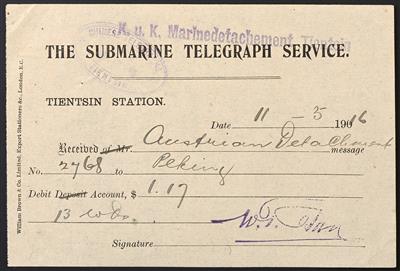 K. u. K. Marinedetachement Tientsin
THE SUBMARINE TELEGRAPH SERVICE.
TIENTSIN STATION.
Date 11 - 5 1916
Received of Mr. Austrian Detachment
message
No. 2768 to Peking
Debit Deposit Account, $ 1.17
13 wds.
Signature
William Brown & Co. Limited, Export Stationers &c., London, E.C.